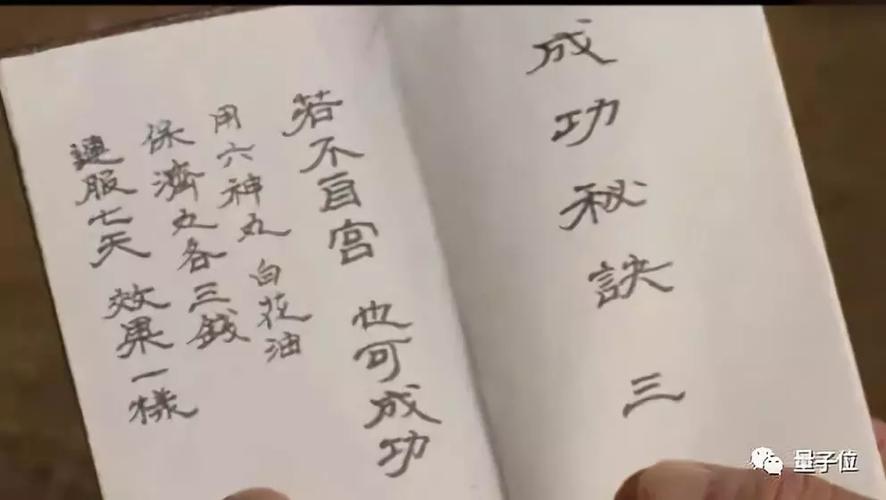 成功秘訣三
若不自宮 也可成功
用六神丸 白花油
保濟丸各三錢
連服七天 效果一樣
量子位